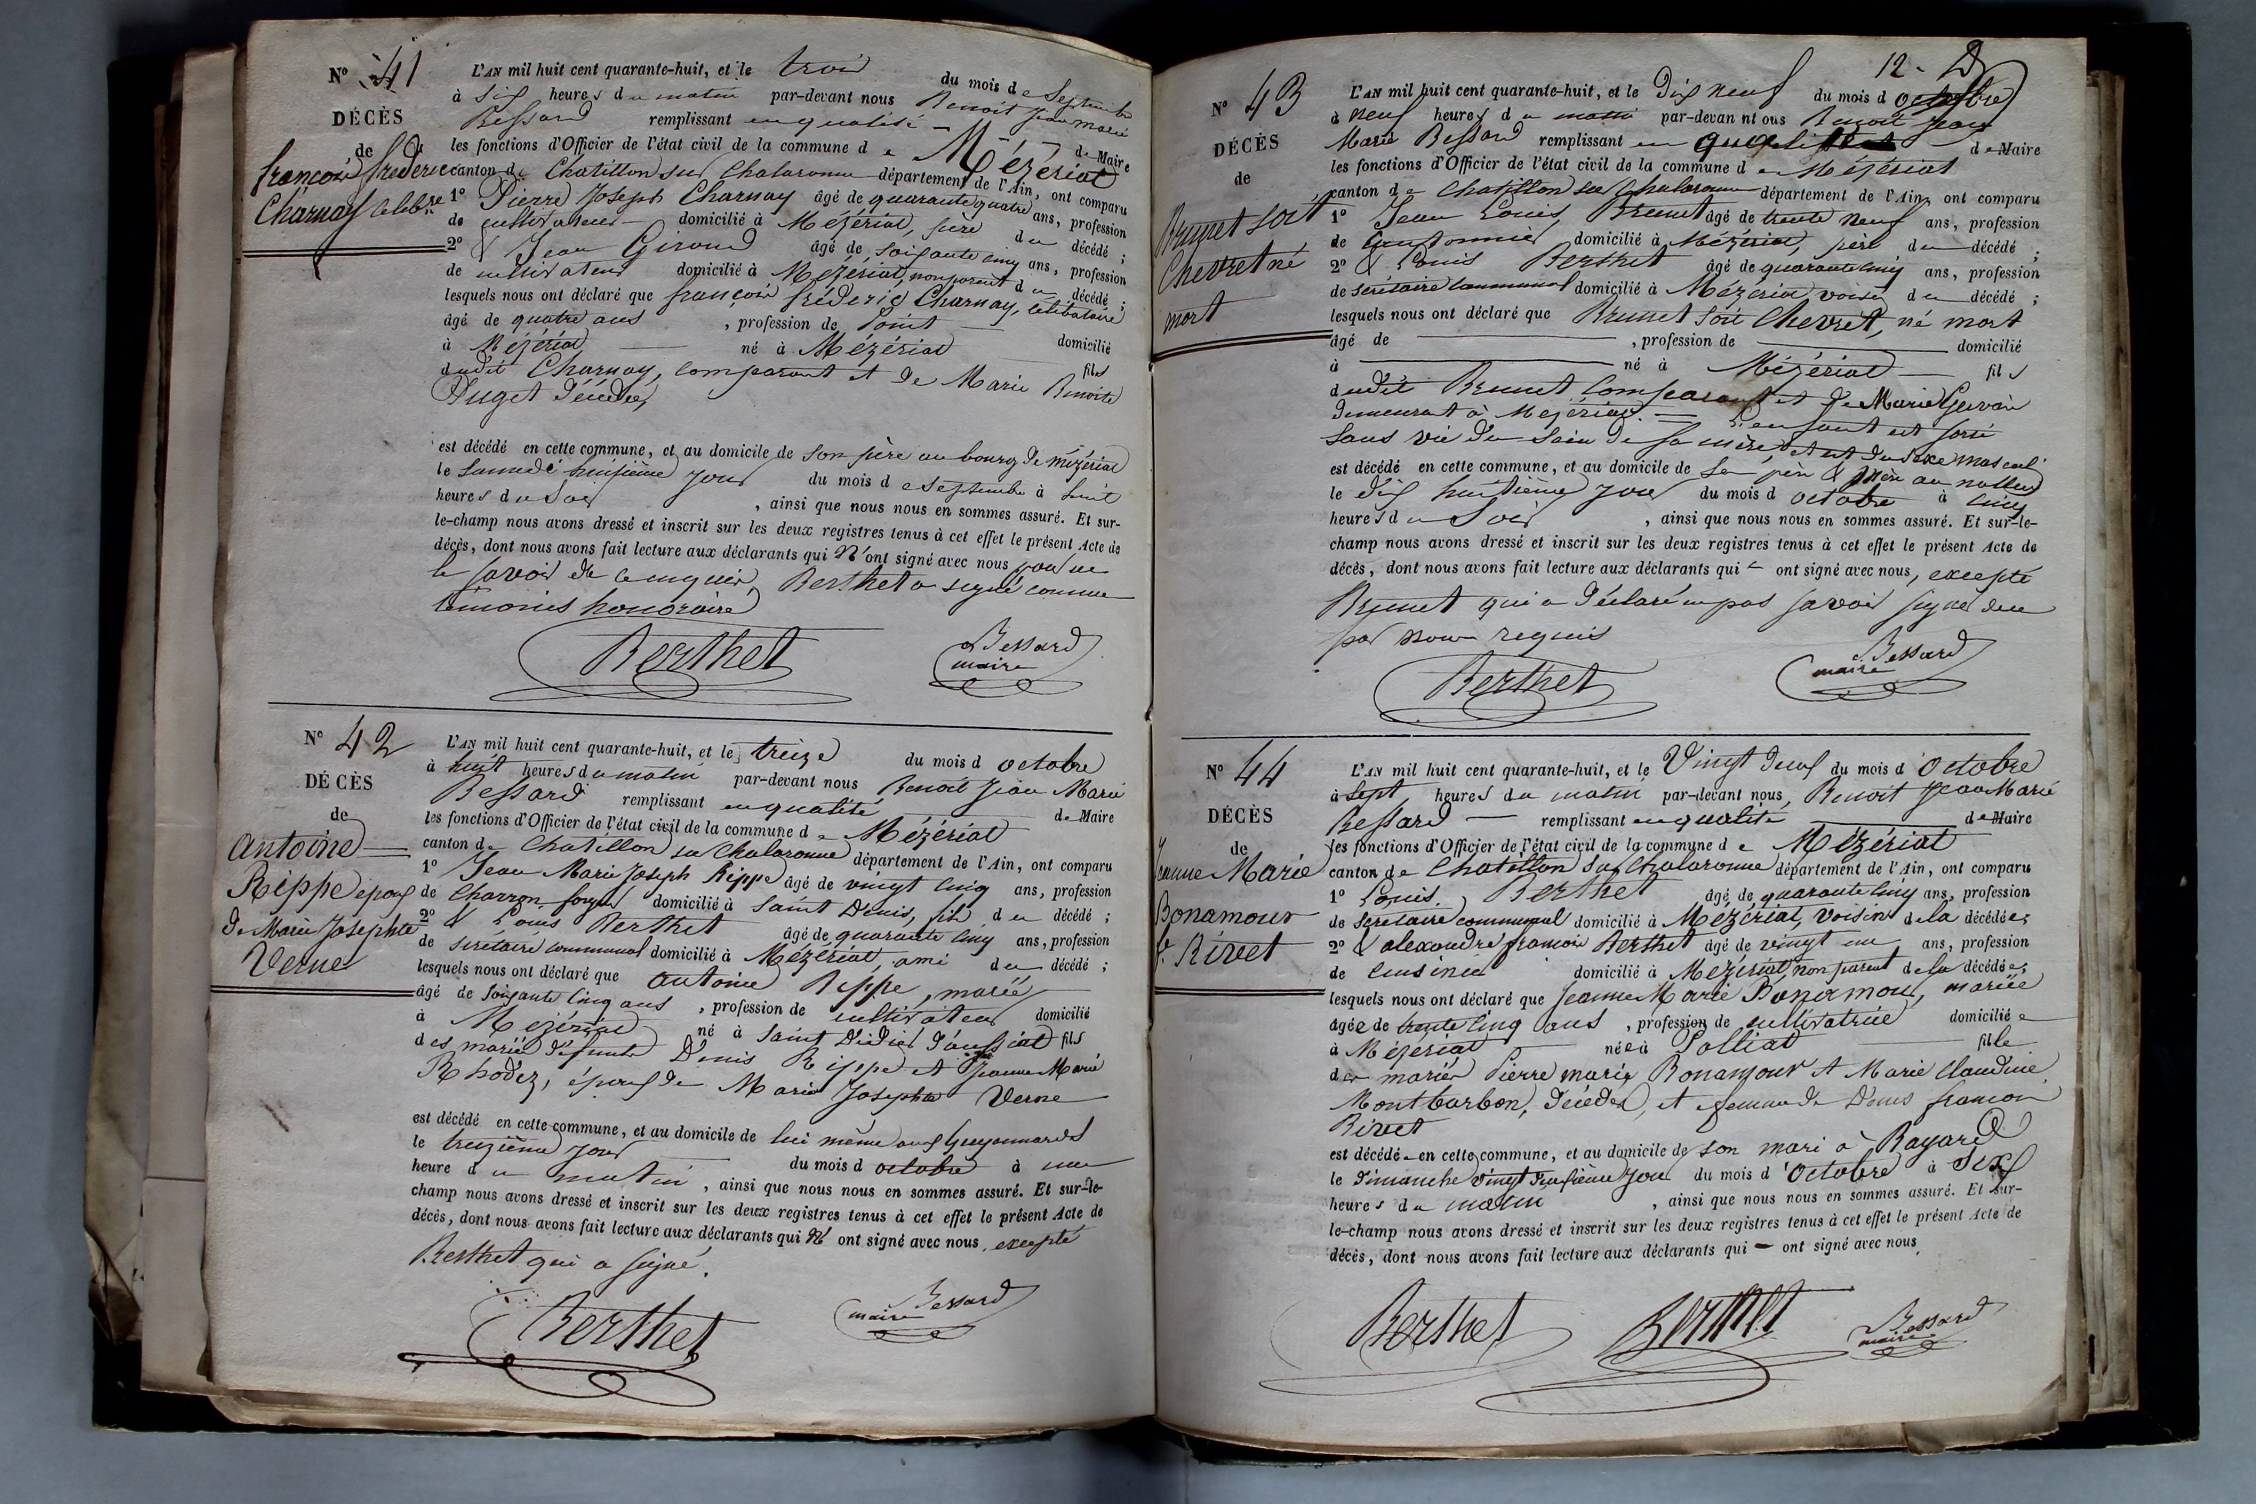 N° 41
DÉCÈS
de
françois frederic
Charnay celebre
L'AN mil huit cent quarante-huit, et le trois du mois de Septembre
à six heures du matin par-devant nous Benoit Jean Marie
Bessard remplissant en qualité de Maire
les fonctions d'Officier de l'état civil de la commune de Mézériat
canton de Chatillon sur Chalaronne département de l'Ain, ont comparu
1° Pierre Joseph Charnay âgé de quarante quatre ans, profession
de cultivateur domicilié à Mézériat, père du décédé ;
2° & Jean Giroud âgé de soixante cinq ans, profession
de cultivateur domicilié à Mézériat, non parent du décédé ;
lesquels nous ont déclaré que françois fréderic Charnay, célibataire
âgé de quatre ans , profession de Point domicilié
à Mézériat né à Mézériat fils
dudit Charnay, comparant et de Marie Benoite
Puget décédée,
est décédé en cette commune, et au domicile de son père au bourg de mézériat
le samedi huitième jour du mois de septembre à huit
heures du soir , ainsi que nous nous en sommes assuré. Et sur-
le-champ nous avons dressé et inscrit sur les deux registres tenus à cet effet le présent Acte de
décès, dont nous avons fait lecture aux déclarants qui N'ont signé avec nous pour ne
le savoir de ce enquis, Berthet a signé comme
témoins honoraire
Berthet Bessard
maire
N° 42
DÉCÈS
de
antoine
Rippe époux
de Marie Josephte
Verne
L'AN mil huit cent quarante-huit, et le treize du mois d octobre
à huit heures du matin par-devant nous Benoit Jean Marie
Bessard remplissant en qualité de Maire
les fonctions d'Officier de l'état civil de la commune de Mézériat
canton de Chatillon sur Chalaronne département de l'Ain, ont comparu
1° Jean Marie Joseph Rippe âgé de vingt cinq ans, profession
de Charron forgeur domicilié à Saint Denis, fils du décédé ;
2° & Louis Berthet âgé de quarante cinq ans, profession
de secrétaire communal domicilié à Mézériat, ami du décédé ;
lesquels nous ont déclaré que antoine Rippe, marié
âgé de soixante cinq ans , profession de cultivateur domicilié
à Mézériat né à Saint Didier d'aussiat fils
des mariés défunts Denis Rippe et Jeanne Marie
Rhodez, époux de Marie Josephte Verne
est décédé en cette commune, et au domicile de lui même aux Guyonnards
le treizième jour du mois d octobre à une
heure du matin , ainsi que nous nous en sommes assuré. Et sur-le-
champ nous avons dressé et inscrit sur les deux registres tenus à cet effet le présent Acte de
décès, dont nous avons fait lecture aux déclarants qui N' ont signé avec nous, excepté
Berthet qui a signé.
Berthet Bessard
maire
12 -
N° 43
DÉCÈS
de
Brunet soit
Chevret né
mort
L'AN mil huit cent quarante-huit, et le dix neuf du mois d octobre
à neuf heures du matin par-devan nt ous Benoit Jean
Marie Bessard remplissant en qualité de Maire
les fonctions d'Officier de l'état civil de la commune de Mézériat
canton de Chatillon sur Chalaronne département de l'Ain, ont comparu
1° Jean Louis Brunet âgé de trente neuf ans, profession
de Cantonnier domicilié à Mézériat, père du décédé ;
2° & Louis Berthet âgé de quarante cinq ans, profession
de secrétaire communal domicilié à Mézériat voisin du décédé ;
lesquels nous ont déclaré que Brunet soit Chevret, né mort
âgé de , profession de domicilié
à né à Mézériat fils
dudit Brunet comparant et de Marie Gervais
demeurant à Mézériat. L'enfant est sorti
sans vie du sein de sa mère, et est du sexe masculin
est décédé en cette commune, et au domicile de ses père & mère au
le dix huitième jour du mois d octobre à cinq
heures du soir , ainsi que nous nous en sommes assuré. Et sur-le-
champ nous avons dressé et inscrit sur les deux registres tenus à cet effet le présent Acte de
décès, dont nous avons fait lecture aux déclarants qui ont signé avec nous, excepté
Brunet qui a déclaré ne pas savoir signer de ce
par nous requis
Berthet Bessard
maire
N° 44
DÉCÈS
de
Jeanne Marie
Bonamour
f. Rivet
L'AN mil huit cent quarante-huit, et le Vingt deux du mois d'Octobre
à sept heures du matin par-devant nous, Benoit Jean Marie
Bessard remplissant en qualité de Maire
les fonctions d'Officier de l'état civil de la commune de Mézériat
canton de Chatillon sur Chalaronne département de l'Ain, ont comparu
1° Louis Berthet âgé de quarante cinq ans, profession
de secrétaire communal domicilié à Mézériat, voisin de la décédée;
2° & alexandre françois Berthet âgé de vingt un ans, profession
de cuisinier domicilié à Mézériat, non parent de la décédée;
lesquels nous ont déclaré que Jeanne Marie Bonamour, mariée
âgée de trente cinq ans , profession de cultivatrice domiciliée
à Mézériat née à Polliat fille
des mariés Pierre marie Bonamour et Marie Claudine
Montbarbon, décédés, et femme de Denis françois
Rivet
est décédée en cette commune, et au domicile de son mari à Bayard
le dimanche vingt deuxième jour du mois d'Octobre à six
heures du matin , ainsi que nous nous en sommes assuré. Et sur-
le-champ nous avons dressé et inscrit sur les deux registres tenus à cet effet le présent Acte de
décès, dont nous avons fait lecture aux déclarants qui ont signé avec nous
Berthet Berthet Bessard
maire